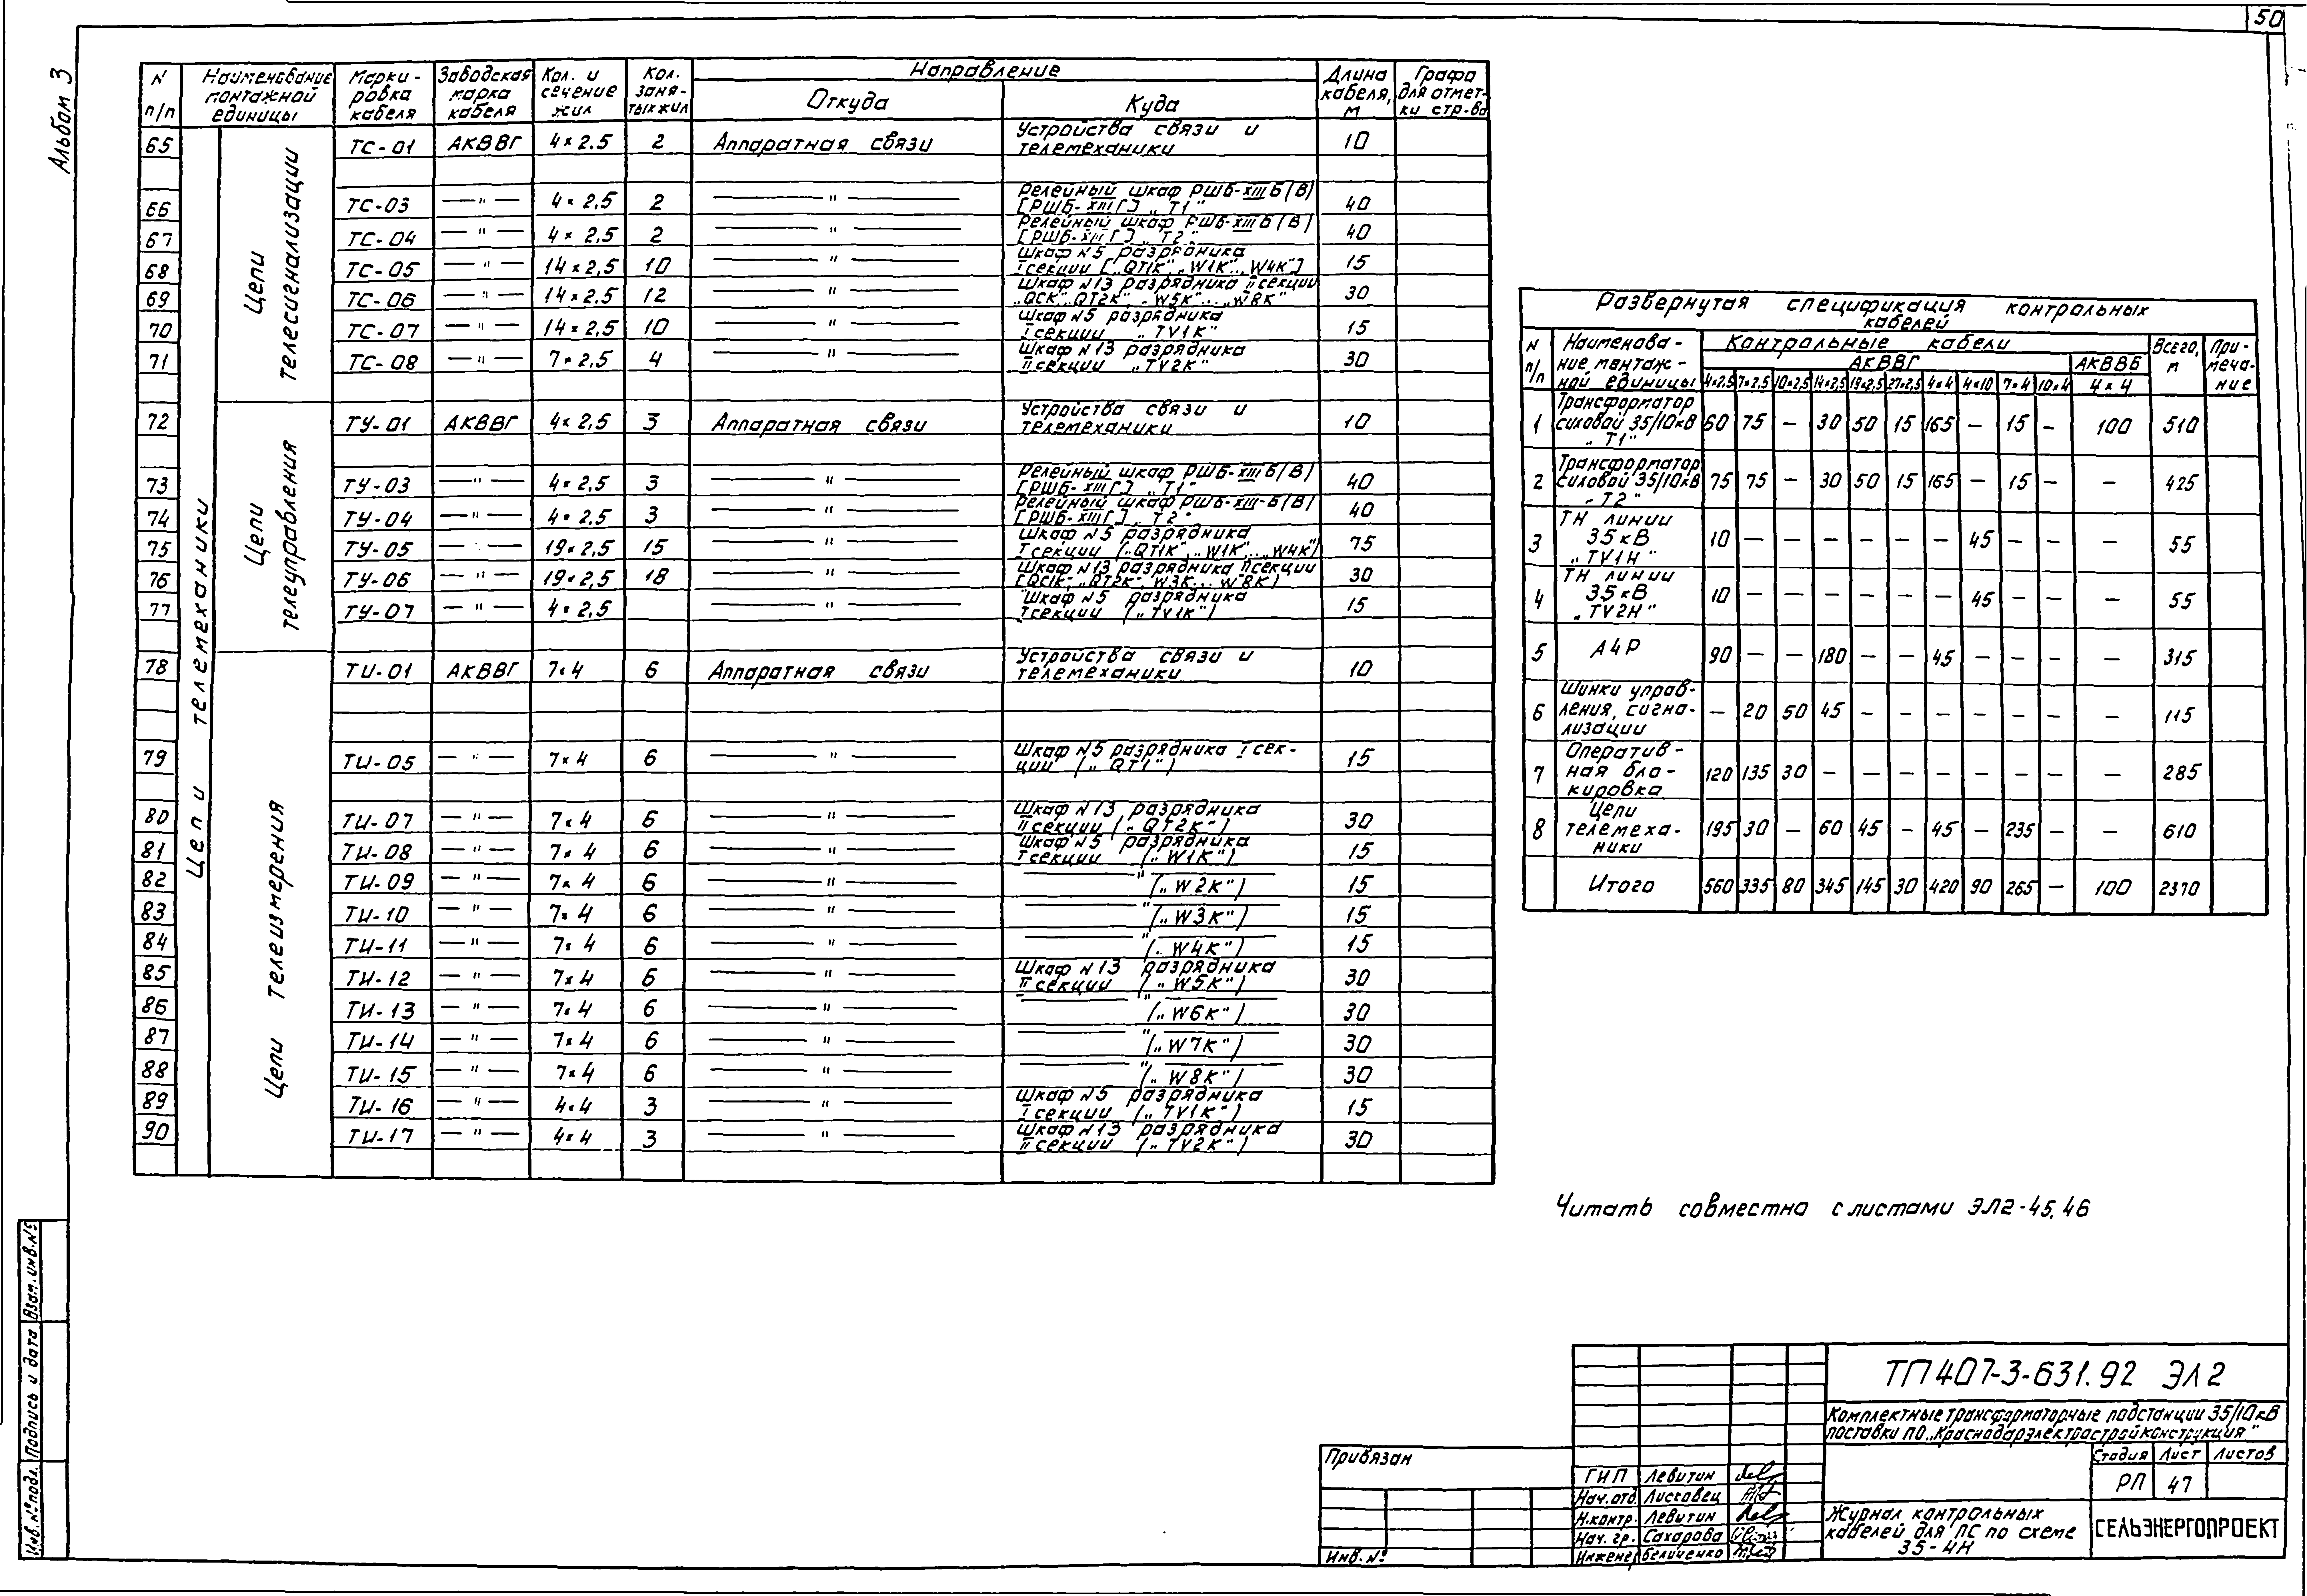 50
Альбом 3
N п/п Наименование монтажной единицы Марки-ровка кабеля Заводская марка кабеля Кол. и сечение жил Кол. заня-тых жил Направление Длина кабеля, м Графа для отмет-ки стр-ва
Откуда Куда
Цепи телемеханики
Цепи телесигнализации
65 ТС-01 АКВВГ 4×2.5 2 Аппаратная связи Устройства связи и телемеханики 10
66 ТС-03 —"— 4×2,5 2 —"— Релейный шкаф РШБ-XIII Б(В) [РШБ-XIII Г] „Т1" 40
67 ТС-04 —"— 4×2,5 2 —"— Релейный шкаф РШБ-XIII Б(В) [РШБ-XIII Г] „Т2" 40
68 ТС-05 —"— 14×2,5 10 —"— Шкаф N5 разрядника I секции [„QT1K", „W1K"... W4K"] 15
69 ТС-06 —"— 14×2,5 12 —"— Шкаф N13 разрядника II секции „QCK", QT2K", „W5K"... „W8K" 30
70 ТС-07 —"— 14×2,5 10 —"— Шкаф N5 разрядника I секции „TV1K" 15
71 ТС-08 —"— 7×2,5 4 —"— Шкаф N13 разрядника II секции „TV2K" 30
Цепи телеуправления
72 ТУ-01 АКВВГ 4×2,5 3 Аппаратная связи Устройства связи и телемеханики 10
73 ТУ-03 —"— 4×2,5 3 —"— Релейный шкаф РШБ-XIII Б(В) [РШБ-XIII Г] „Т1" 40
74 ТУ-04 —"— 4×2,5 3 —"— Релейный шкаф РШБ-XIII-Б(В) [РШБ-XIII Г] „Т2" 40
75 ТУ-05 —"— 19×2,5 15 —"— Шкаф N5 разрядника I секции („QT1K", „W1K"... „W4K") 75
76 ТУ-06 —"— 19×2,5 18 —"— Шкаф N13 разрядника II секции [QC1K", „QT2K", W3K... W8K) 30
77 ТУ-07 —"— 4×2,5 —"— Шкаф N5 разрядника I секции („TV1K") 15
Цепи телеизмерения
78 ТИ-01 АКВВГ 7×4 6 Аппаратная связи Устройства связи и телемеханики 10
79 ТИ-05 —"— 7×4 6 —"— Шкаф N5 разрядника I сек-ции („QT1") 15
80 ТИ-07 —"— 7×4 6 —"— Шкаф N13 разрядника II секции („QT2K") 30
81 ТИ-08 —"— 7×4 6 —"— Шкаф N5 разрядника I секции („W1K") 15
82 ТИ-09 —"— 7×4 6 —"— —"— („W2K") 15
83 ТИ-10 —"— 7×4 6 —"— —"— („W3K") 15
84 ТИ-11 —"— 7×4 6 —"— —"— („W4K") 15
85 ТИ-12 —"— 7×4 6 —"— Шкаф N13 разрядника II секции („W5K") 30
86 ТИ-13 —"— 7×4 6 —"— —"— („W6K") 30
87 ТИ-14 —"— 7×4 6 —"— —"— („W7K") 30
88 ТИ-15 —"— 7×4 6 —"— —"— („W8K") 30
89 ТИ-16 —"— 4×4 3 —"— Шкаф N5 разрядника I секции („TV1K") 15
90 ТИ-17 —"— 4×4 3 —"— Шкаф N13 разрядника II секции („TV2K") 30
Развернутая спецификация контрольных кабелей
N п/п Наименова-ние монтаж-ной единицы Контрольные кабели Всего, м При-меча-ние
АКВВГ АКВВБ
4×2,5 7×2,5 10×2,5 14×2,5 19×2,5 27×2,5 4×4 4×10 7×4 10×4 4×4
1 Трансформатор силовой 35/10кВ „Т1" 60 75 — 30 50 15 165 — 15 — 100 510
2 Трансформатор силовой 35/10кВ „Т2" 75 75 — 30 50 15 165 — 15 — — 425
3 ТН линии 35кВ „TV1H" 10 — — — — — — 45 — — — 55
4 ТН линии 35кВ „TV2H" 10 — — — — — — 45 — — — 55
5 АЧР 90 — — 180 — — 45 — — — — 315
6 Шинки управ-ления, сигна-лизации — 20 50 45 — — — — — — — 115
7 Оператив-ная бло-кировка 120 135 30 — — — — — — — — 285
8 Цепи телемеха-ники 195 30 — 60 45 — 45 — 235 — — 610
Итого 560 335 80 345 145 30 420 90 265 — 100 2370
Читать совместно с листами ЭЛ2-45,46
ТП 407-3-631.92 ЭЛ2
Комплектные трансформаторные подстанции 35/10кВ
поставки ПО „Краснодарэлектростройконструкция"
Стадия Лист Листов
РП 47
Журнал контрольных
кабелей для ПС по схеме
35-4Н
СЕЛЬЭНЕРГОПРОЕКТ
Привязан
Инв.N°
ГИП Левитин
Нач.отд. Лисговец
Н.контр. Левитин
Нач. гр. Сахарова
Инженер Беличенко
Инв.N°подл. Подпись и дата Взам.инв.N°